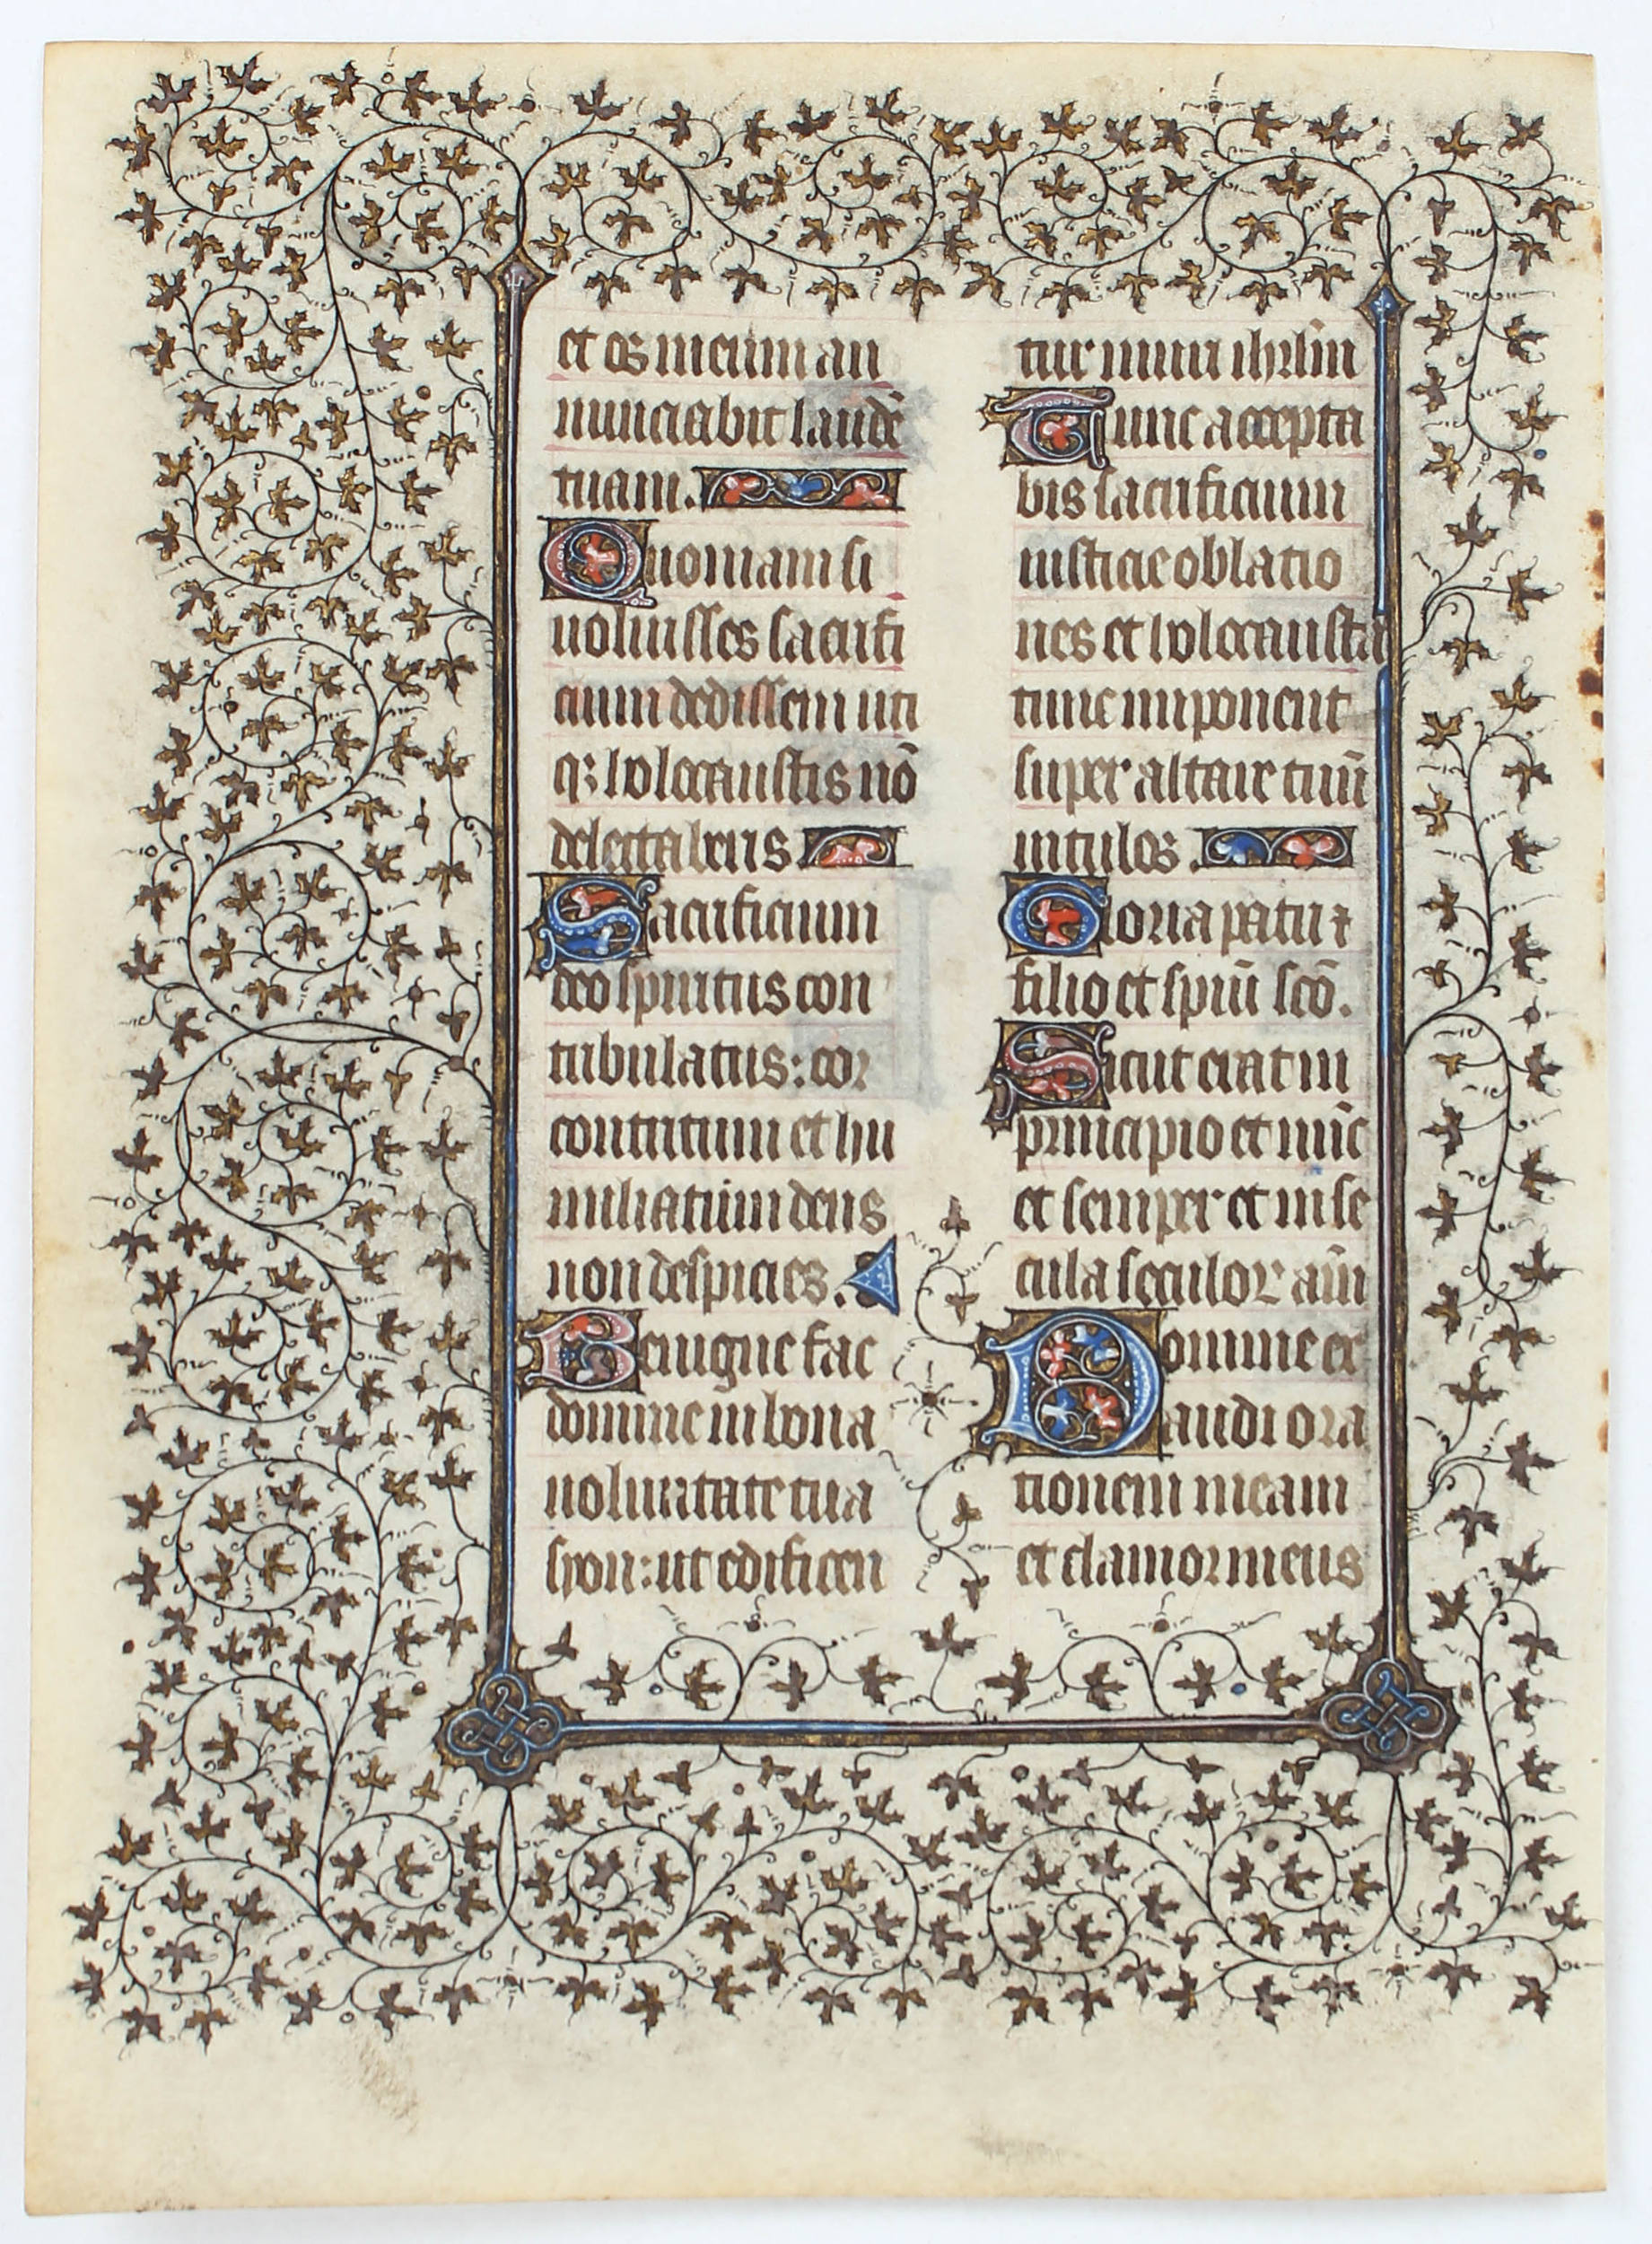 et os meum an
nunciabit laudē
tuam.
Quoniam si
uoluisses sacrifi
cium dedissem uti
qꝫ holocaustis nō
delectaberis
Sacrificium
deo spiritus con
tribulatus: cor
contritum et hu
miliatum deus
non despicies.
Benigne fac
domine in bona
uoluntate tua
syon: ut edificen
tur muri ihrlm̄
Tunc accepta
bis sacrificium
iusticie oblatio
nes et holocausta
tunc imponent
super altare tuū
uitulos.
Gloria patri ⁊
filio et spiū scō.
Sicut erat in
principio et nūc
et semper et in se
cula seculoꝝ am̄
Domine ex
audi ora
tionem meam
et clamor meus